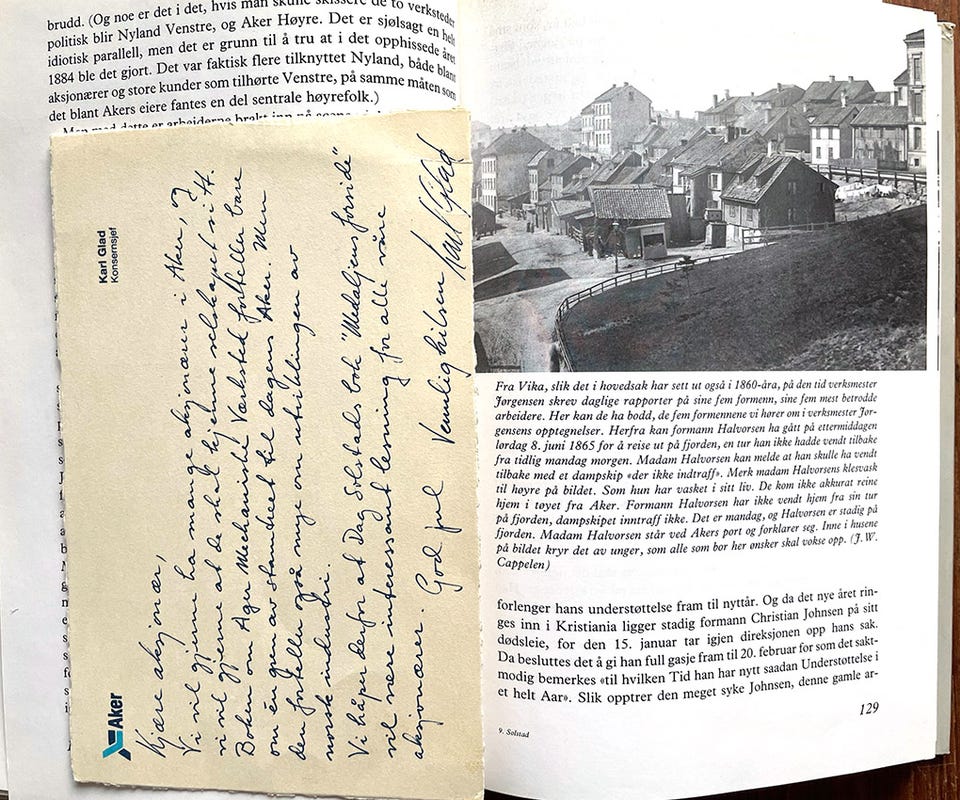 brudd. (Og noe er det i det, hvis man skulle skissere de to verksteder
politisk blir Nyland Venstre, og Aker Høyre. Det er sjølsagt en helt
idiotisk parallell, men det er grunn til å tru at i det opphissede året
1884 ble det gjort. Det var faktisk flere tilknyttet Nyland, både blant
aksjonærer og store kunder som tilhørte Venstre, på samme måten som
det blant Akers eiere fantes en del sentrale høyrefolk.)
Aker
Karl Glad
Konsernsjef
Kjære aksjonær,
Vi vil gjerne ha mange aksjonærer i Aker, og
vi vil gjerne at de skal kjenne selskapet sitt.
Boken om Agers Mechaniske Værksted forteller bare
om én gren av stamtreet til dagens Aker. Men
den forteller også mye om utviklingen av
norsk industri.
Vi håper derfor at Dag Solstads bok "Medaljens forside"
vil være interessant lesning for alle våre
aksjonærer. God jul Vennlig hilsen Karl Glad
Fra Vika, slik det i hovedsak har sett ut også i 1860-åra, på den tid verksmester
Jørgensen skrev daglige rapporter på sine fem formenn, sine fem mest betrodde
arbeidere. Her kan de ha bodd, de fem formennene vi hører om i verksmester Jør-
gensens opptegnelser. Herfra kan formann Halvorsen ha gått på ettermiddagen
lørdag 8. juni 1865 for å reise ut på fjorden, en tur han ikke hadde vendt tilbake
fra tidlig mandag morgen. Madam Halvorsen kan melde at han skulle ha vendt
tilbake med et dampskip «der ikke indtraff». Merk madam Halvorsens klesvask
til høyre på bildet. Som hun har vasket i sitt liv. De kom ikke akkurat reine
hjem i tøyet fra Aker. Formann Halvorsen har ikke vendt hjem fra sin tur
på fjorden, dampskipet inntraff ikke. Det er mandag, og Halvorsen er stadig på
fjorden. Madam Halvorsen står ved Akers port og forklarer seg. Inne i husene
på bildet kryr det av unger, som alle som bor her ønsker skal vokse opp. (J. W.
Cappelen)
forlenger hans understøttelse fram til nyttår. Og da det nye året rin-
ges inn i Kristiania ligger stadig formann Christian Johnsen på sitt
dødsleie, for den 15. januar tar igjen direksjonen opp hans sak.
Da besluttes det å gi han full gasje fram til 20. februar for som det sakt-
modig bemerkes «til hvilken Tid han har nytt saadan Understøttelse i
et helt Aar». Slik opptrer den meget syke Johnsen, denne gamle ar-
129
9. Solstad